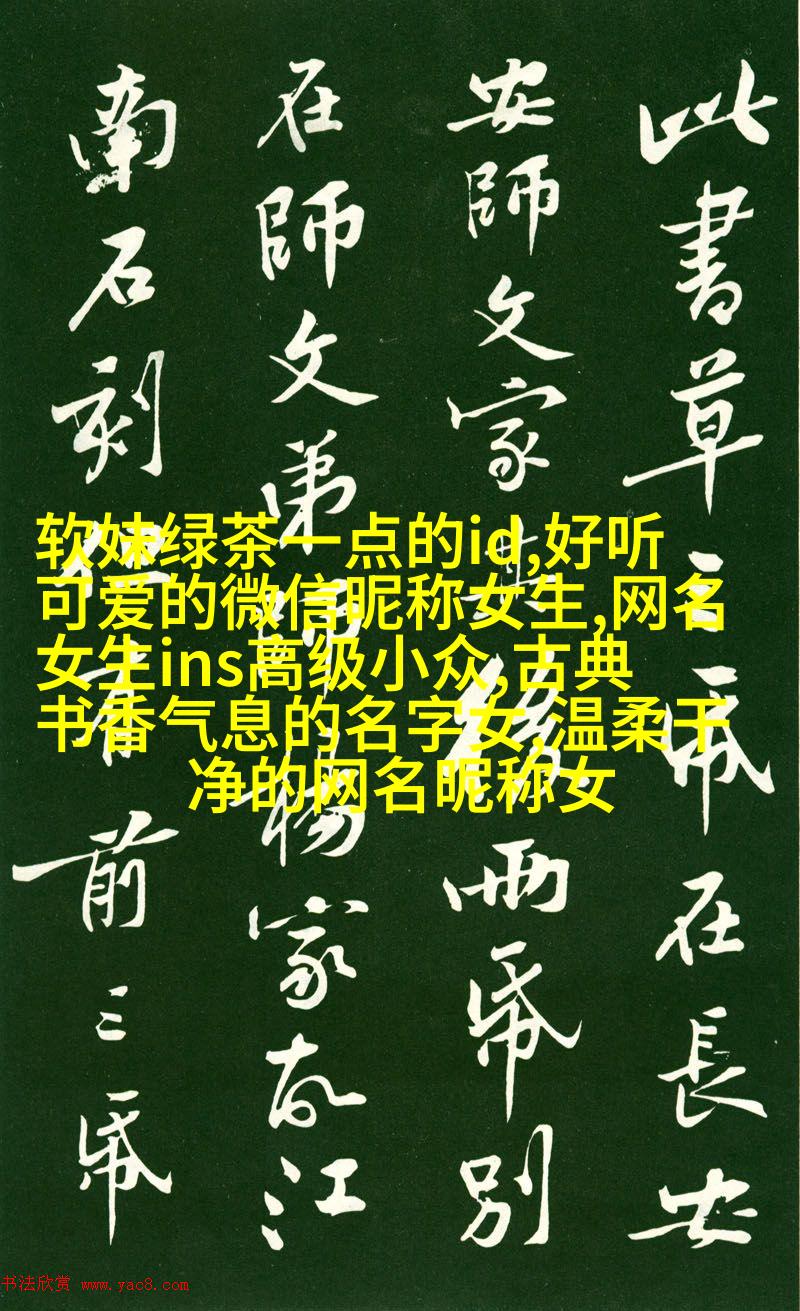 此書草三帋在長安
安師文家其後兩帋別
在師文弟師楊家故江
南石刻前三帋
软妹绿茶一点的id,好听
可爱的微信昵称女生,网名
女生ins高级小众,古典
书香气息的名字女,温柔干
净的网名昵称女
书法欣赏 www.yac8.com